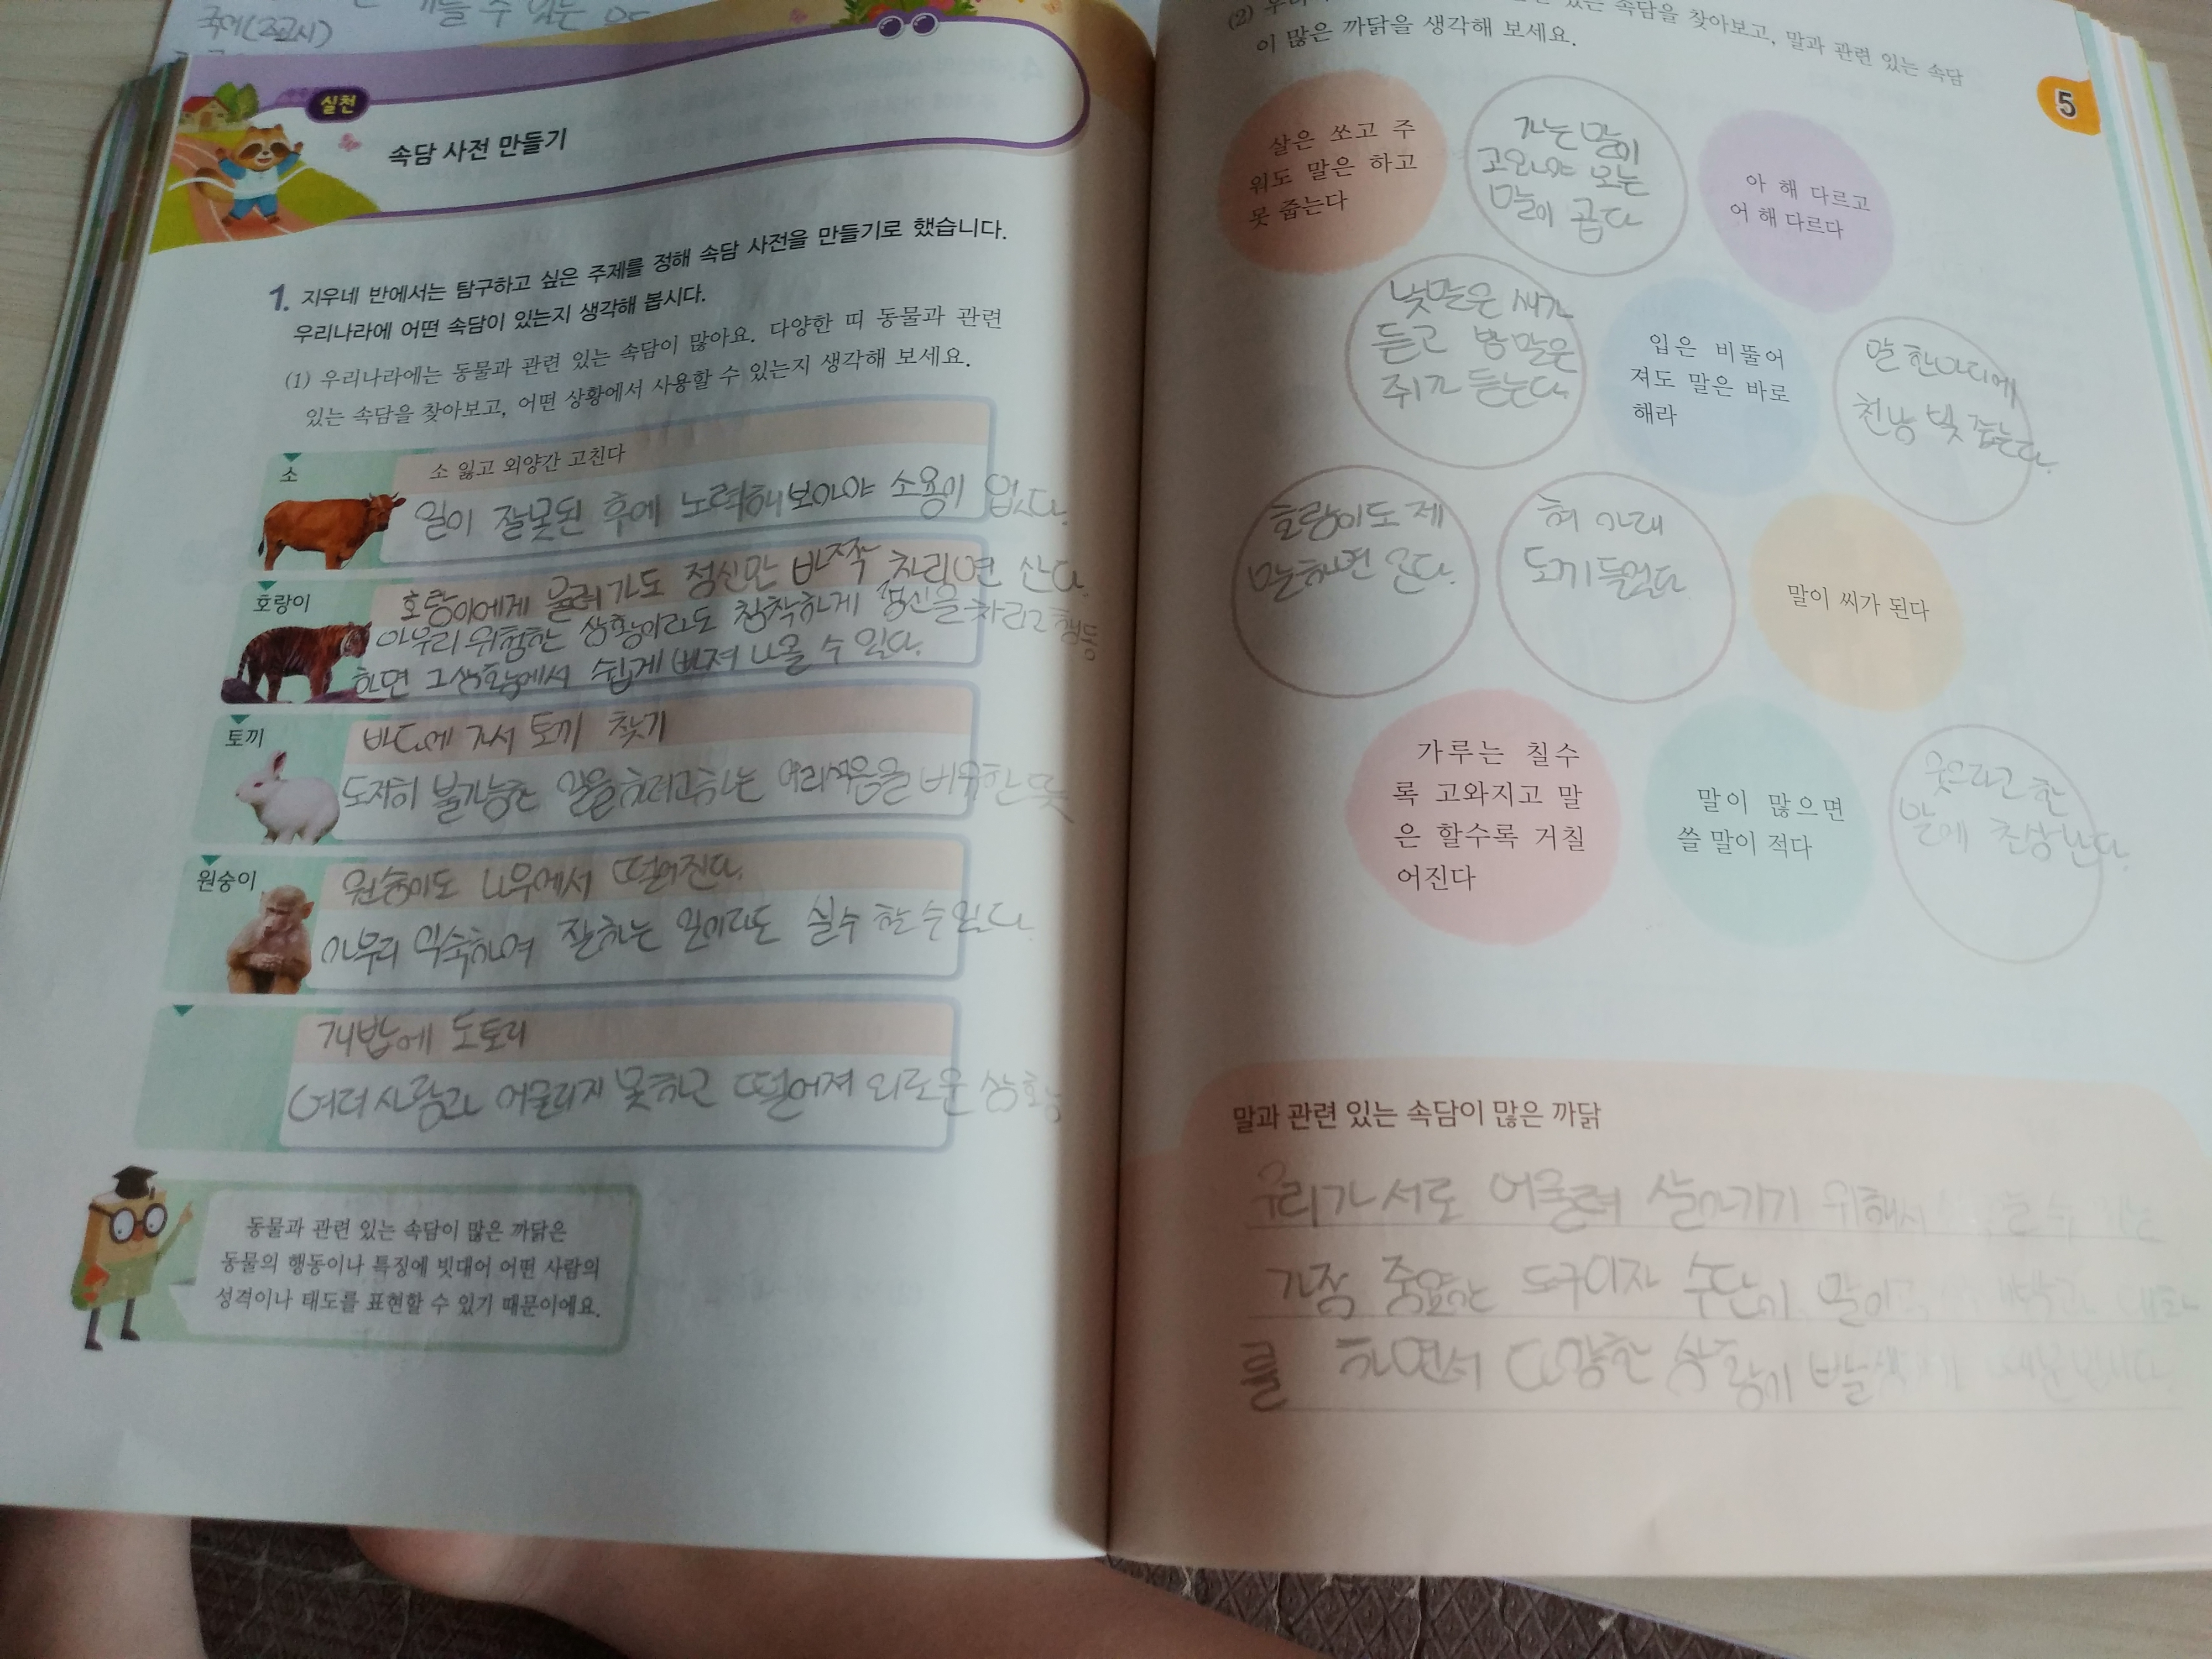 국어(교과서)
수 있는
실천
속담 사전 만들기
1. 지우네 반에서는 탐구하고 싶은 주제를 정해 속담 사전을 만들기로 했습니다.
우리나라에 어떤 속담이 있는지 생각해 봅시다.
(1) 우리나라에는 동물과 관련 있는 속담이 많아요. 다양한 띠 동물과 관련
있는 속담을 찾아보고, 어떤 상황에서 사용할 수 있는지 생각해 보세요.
소
소 잃고 외양간 고친다
일이 잘못된 후에 노력해보아야 소용이 없다.
호랑이
호랑이에게 물려가도 정신만 바짝 차리면 산다.
아무리 위험한 상황이라도 침착하게 정신을 차리고 행동
하면 그 상황에서 쉽게 빠져 나올 수 있다.
토끼
바다에 가서 토끼 찾기
도저히 불가능한 일을 하려고하는 어리석음을 비유한 뜻
원숭이
원숭이도 나무에서 떨어진다.
아무리 익숙하여 잘하는 일이라도 실수 할 수 있다.
개밥에 도토리
여러 사람과 어울리지 못하고 떨어져 외로운 상황
동물과 관련 있는 속담이 많은 까닭은
동물의 행동이나 특징에 빗대어 어떤 사람의
성격이나 태도를 표현할 수 있기 때문이에요.
(2) 있는 속담을 찾아보고, 말과 관련 있는 속담
이 많은 까닭을 생각해 보세요.
5
살은 쏘고 주
워도 말은 하고
못 줍는다
가는 말이
고와야 오는
말이 곱다
아 해 다르고
어 해 다르다
낮말은 새가
듣고 밤말은
쥐가 듣는다.
입은 비뚤어
져도 말은 바로
해라
말 한마디에
천냥 빚 갚는다.
호랑이도 제
말하면 온다.
혀 아래
도끼 들었다
말이 씨가 된다
가루는 칠수
록 고와지고 말
은 할수록 거칠
어진다
말이 많으면
쓸 말이 적다
웃으라고 한
말에 초상난다.
말과 관련 있는 속담이 많은 까닭
우리가 서로 어울려 살아가기 위해서
가장 중요한 도구이자 수단이 말이고
를 하면서 다양한 상황이 발생